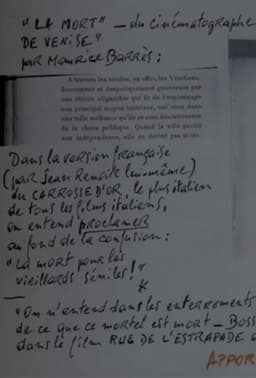 "LA MORT" – du cinématographe
DE VENISE"
par Maurice Barrès :
A travers les siècles, en effet, les Vénitiens,
despotiquement gouvernés par
une étroite oligarchie qui fit de l'espionnage
son principal moyen intérieur, ont vécu dans
une telle méfiance qu'ils se sont désintéressés
de la chose publique. Quand la ville perdit
son indépendance, elle ne devint pas triste.
Dans la version française
(par Jean Renoir lui-même)
du CARROSSE D'OR, le plus italien
de tous les films italiens,
on entend proclamer
au fond de la confusion :
"La mort pour les
vieillards séniles!"
*
– "On n'entend dans les enterrements
de ce que ce mortel est mort – BOSS
dans le film RUE DE L'ESTRAPADE
APPOR